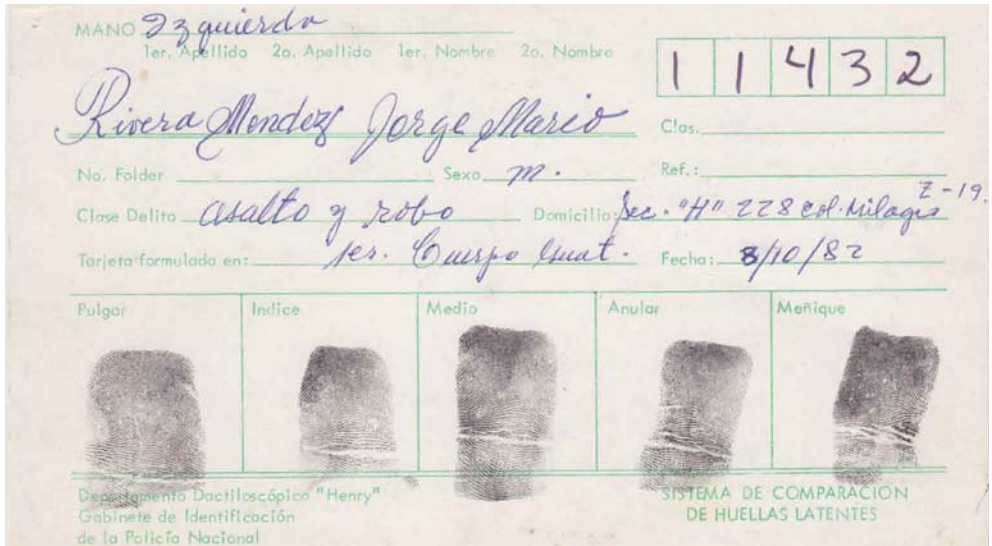 MANO Izquierda
1er. Apellido 2o. Apellido 1er. Nombre 2o. Nombre
1 1 4 3 2
Rivera Mendez Jorge Mario
Clas.
No. Folder Sexo m. Ref.:
Z-19.
Clase Delito asalto y robo Domicilio: Sec. "H" 228 Col. Milagro
Tarjeta formulada en: 1er. Cuerpo Guat. Fecha: 8/10/82
Pulgar Indice Medio Anular Meñique
Departamento Dactiloscópico "Henry"
Gabinete de Identificación
de la Policía Nacional
SISTEMA DE COMPARACION
DE HUELLAS LATENTES